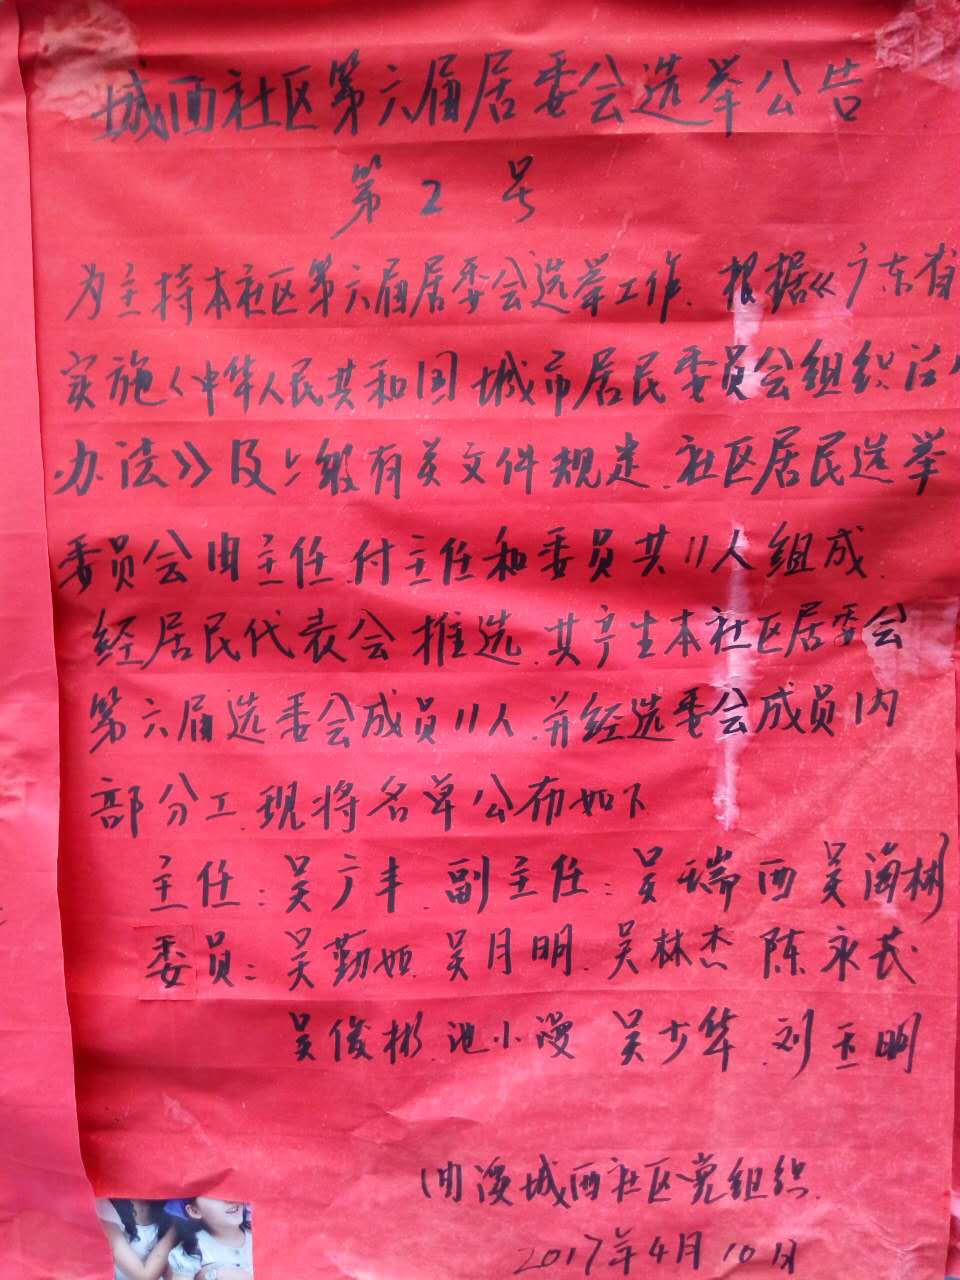 城西社区第六届居委会选举公告
第2号
为主持本社区第六届居委会选举工作.根据《广东省
实施〈中华人民共和国城市居民委员会组织法〉
办法》》及上级有关文件规定.社区居民选举
委员会由主任.付主任和委员共11人组成.
经居民代表会推选.共产生本社区居委会
第六届选委会成员11人.并经选委会成员内
部分工.现将名单公布如下
主任:吴广丰.副主任:吴瑞西 吴海彬
委员:吴勤姬.吴月明.吴林杰 陈永茂
吴俊彬.池小漫 吴少华.刘玉明
城西社区党组织.
2017年4月10日